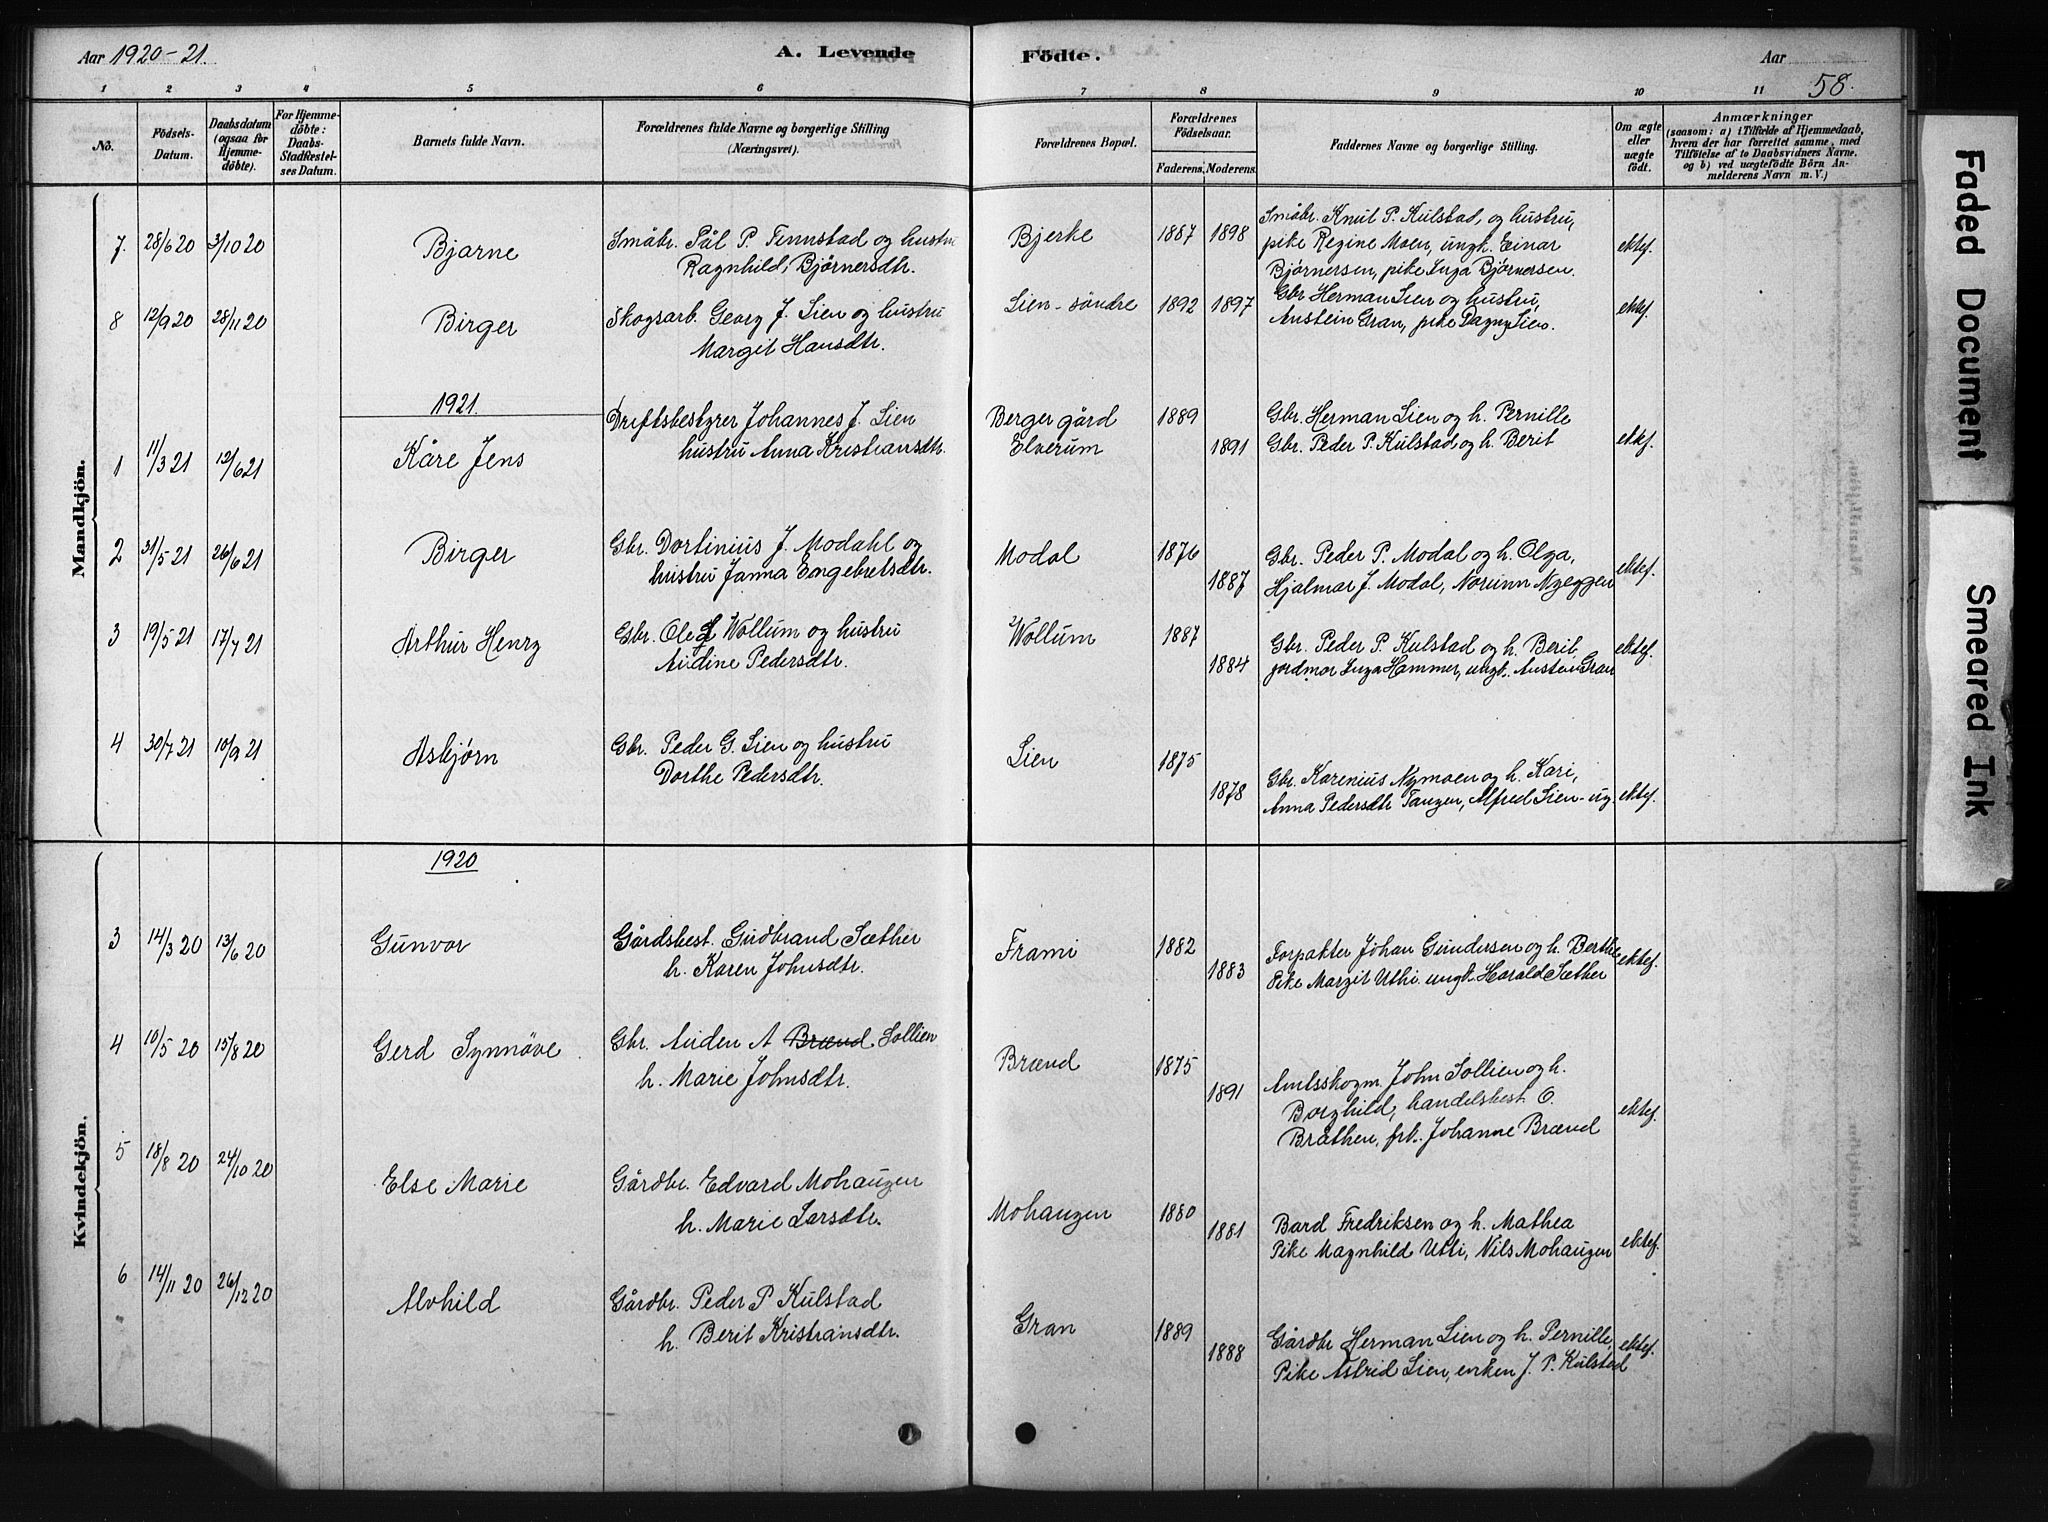 Aar 1920-21.
A. Levende Födte.
Aar
58.
1 2 3 4 5 6 7 8 9 10 11
No.
Födsels-Datum.
Daabsdatum (ogsaa for Hjemmedöbte).
For Hjemmedöbte: Daabs-Stadfestelses Datum.
Barnets fulde Navn.
Forældrenes fulde Navne og borgerlige Stilling (Næringsvei).
Forældrenes Bopæl.
Forældrenes Födselsaar.
Faderens. Moderens.
Faddernes Navne og borgerlige Stilling.
Om ægte eller uægte födt.
Anmærkninger
(saasom: a) i Tilfælde af Hjemmedaab, hvem der har forrettet samme, med Tilföielse af to Daabsvidners Navne, og b) ved uægtefödte Börn Anmelderens Navn m. V.)
Mandkjön.
7. 28/6 20 3/10 20 Bjarne Småbr. Pål P. Tennstad og hustru Bjerke 1887 1898 Småbr. Knut P. Kulstad, og hustru,
Ragnhild, Bjørnersdtr. pike Regine Moen, ungk. Einar ektef.
Bjørnersen, pike Inga Bjørnersen.
8 12/9 20 28/11 20 Birger Skogsarb. Georg J. Lien og hustru Lien-söndre 1892 1897 Gbr Herman Lien og hustru, ektef.
Margit Hansdtr. Austein Gran, pike Dagny Lien.
1921.
1 11/3 21 12/6 21 Kåre Jens Driftsbestyrer Johannes J. Lien Berger gård 1889 Gbr. Herman Lien og h. Pernille
hustru Anna Kristiansdtr. Elverum 1891 Gbr. Peder P. Kulstad, og h. Berit ektef.
2 31/5 21 26/6 21 Birger Gbr. Dortinius J. Modahl og Modal 1876 Gbr. Peder P. Modal og h. Olga, ektef.
hustru Janna Engebretsdtr. 1887 Hjalmar J. Modal, Norunn Nyeggen
3 19/5 21 17/7 21 Arthur Henry Gbr. Ole Wollum og hustru Wollum 1887 Gbr. Peder P. Kulstad og h. Berit, ektef.
Audine Pedersdtr. 1884 jordmor Inga Hammer, ungk. Austein Gran
4 30/7 21 10/9 21 Asbjørn Gbr. Peder G. Lien og hustru Lien 1875 Gbr. Karenius Nymoen og h. Kari,
Dorthe Pedersdtr. 1878 Anna Pedersdtr Tangen, Alfred Lien-ug. ektef.
Kvindekjön.
1920
3 14/3 20 13/6 20 Gunvor Gårdsbest. Gudbrand Sæther Frami 1882 Forpakter Johan Gundersen og h. Berthe ektef.
h. Karen Johnsdtr. 1883 Pike Margit Uthi ungk. Harald Sæther
4 10/5 20 15/8 20 Gerd Synnöve. Gbr. Auden A Brænd Sollien Brænd 1875 Amtsskogm. John Sollien og h.
h. Marie Johnsdtr. 1891 Borghild, handelsbest. O. ektef.
Bråthen, frk. Johanne Brænd
5 18/8 20 24/10 20 Else Marie Gårdbr. Edvard Mohaugen Mohaugen 1880 Bård Fredriksen og h. Mathea
h. Marie Larsdtr. 1881 Pike Magnhild Utti, Nils Mohaugen ektef.
6 14/11 20 26/12 20 Alvhild Gårdbr. Peder P Kulstad Gran 1889 Gårdbr Herman Lien og h. Pernille, ektef.
h. Berit Kristiansdtr. 1888 Pike Astrid Lien, enken J. P. Kulstad
Faded Document
Smeared Ink